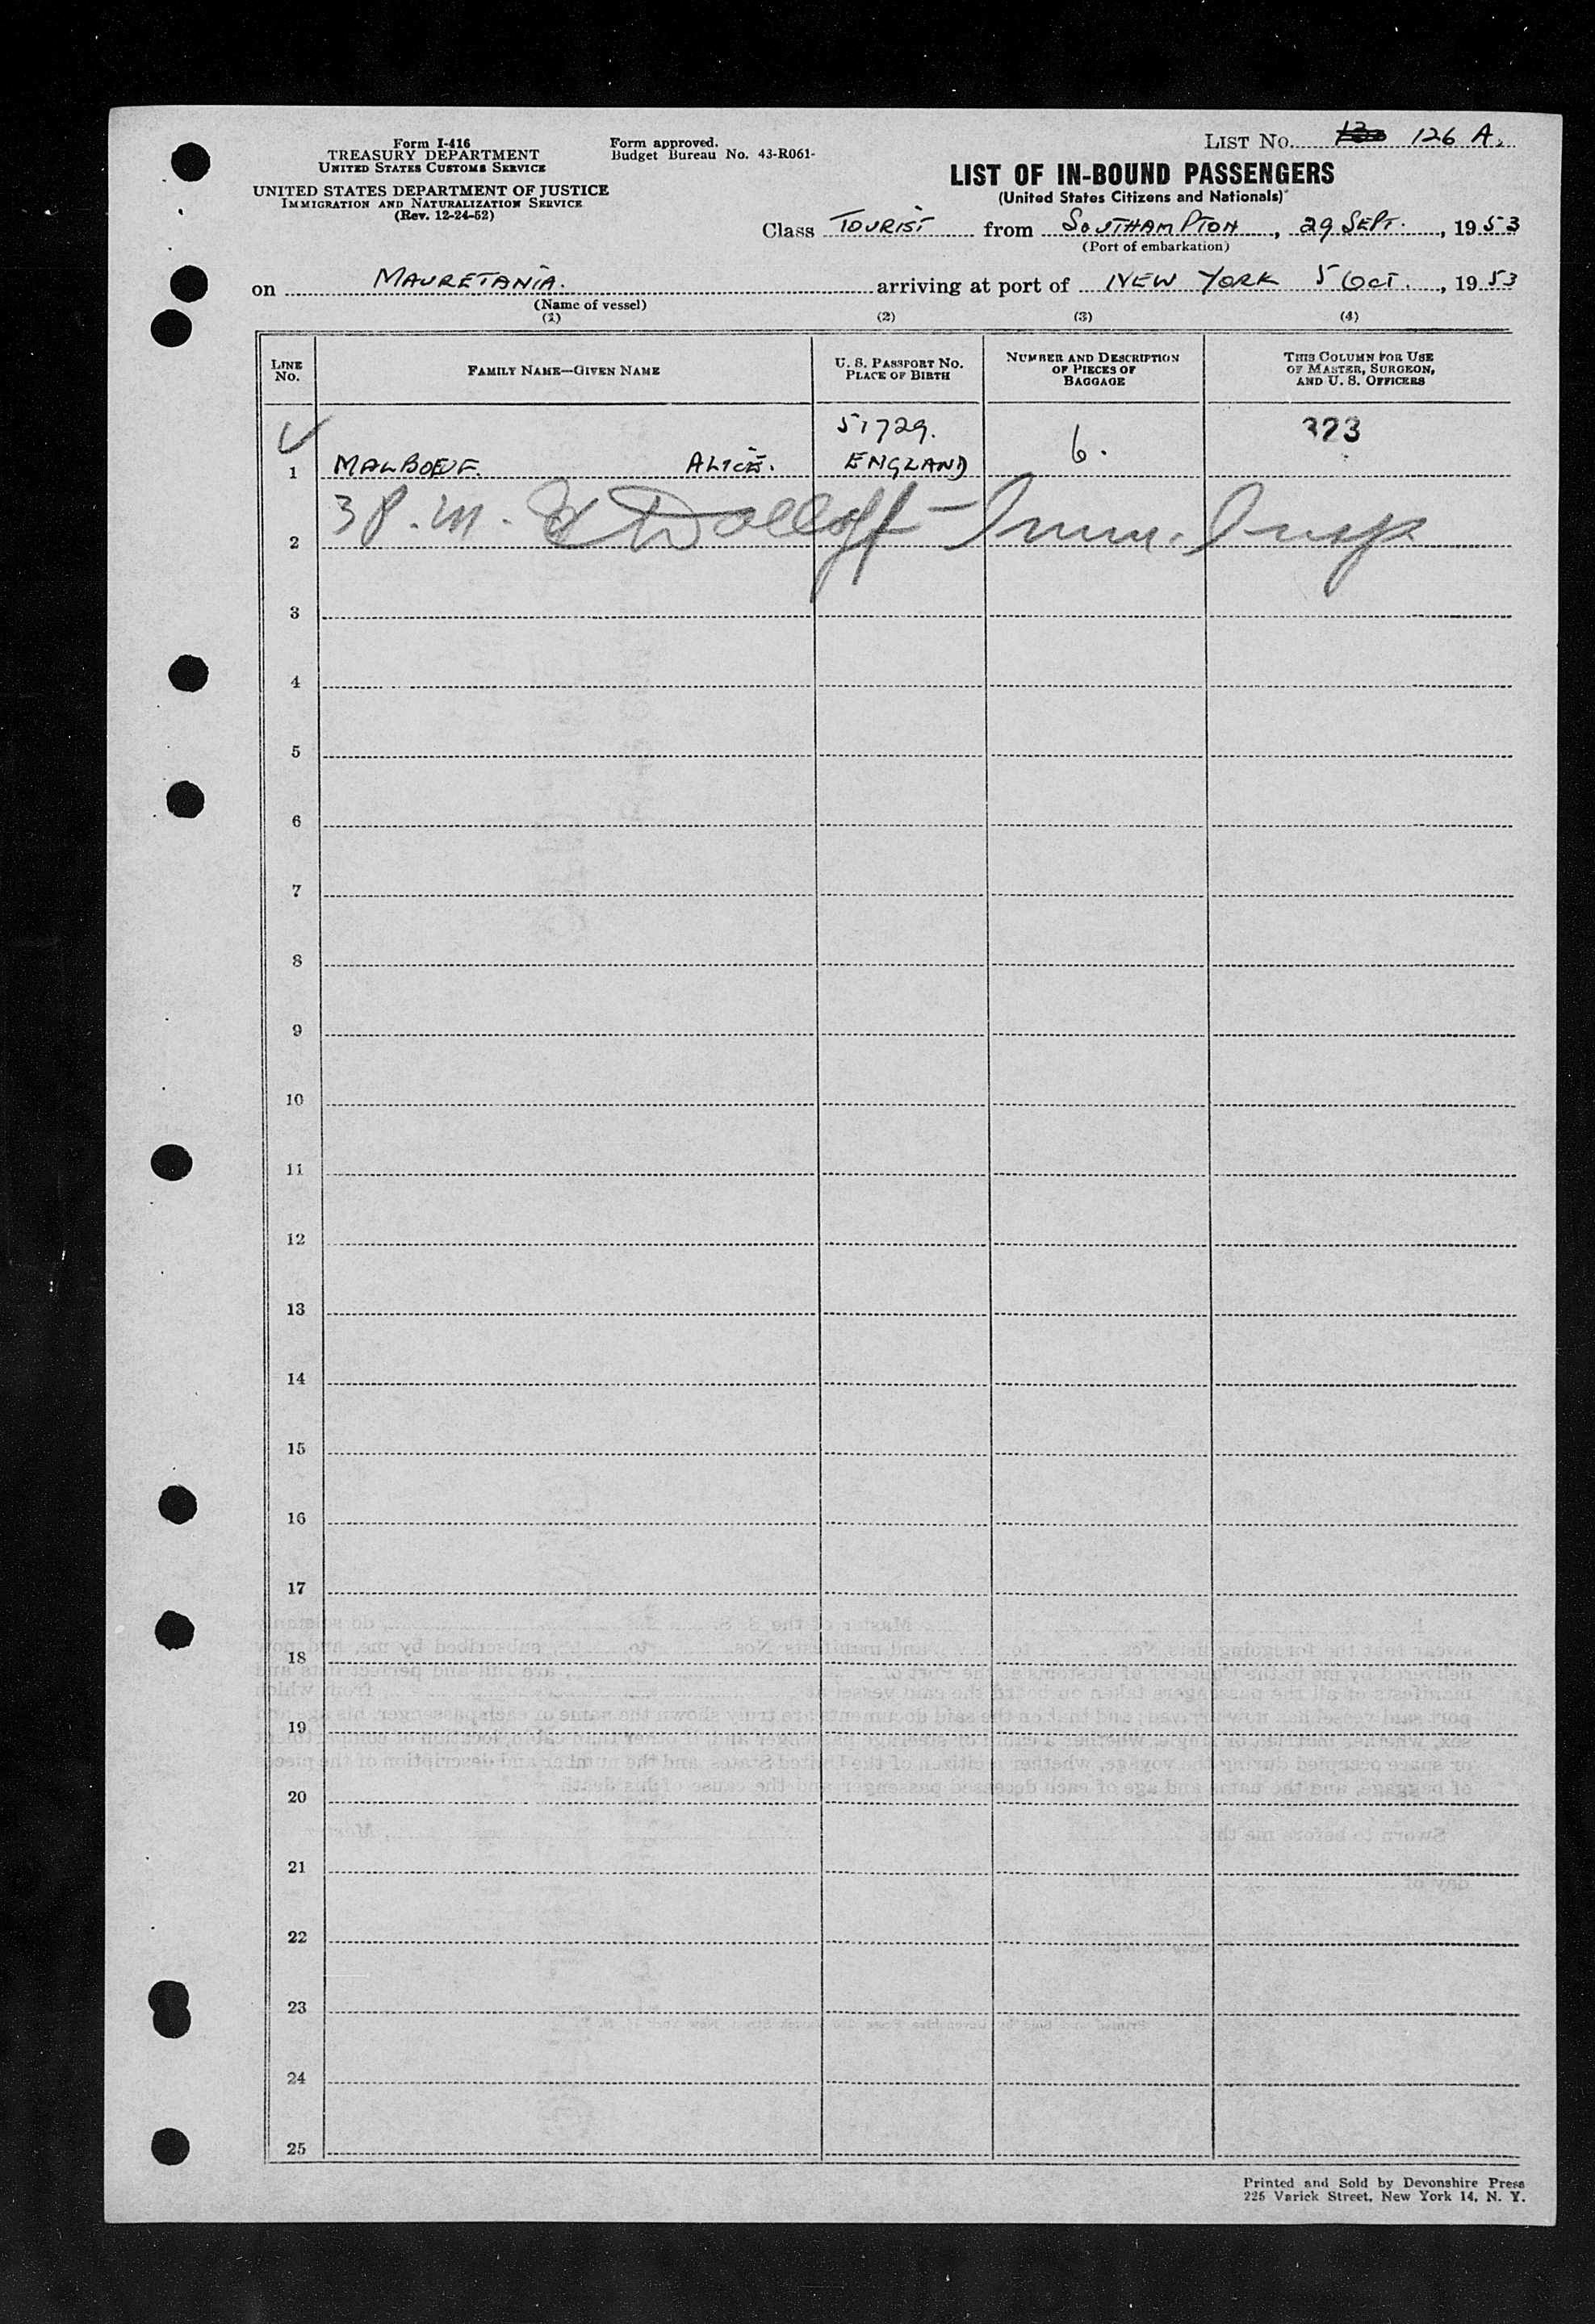 Form I-416
TREASURY DEPARTMENT
UNITED STATES CUSTOMS SERVICE
UNITED STATES DEPARTMENT OF JUSTICE
IMMIGRATION AND NATURALIZATION SERVICE
(Rev. 12-24-52)
Form approved.
Budget Bureau No. 43-R061-
LIST No. 126 A.
LIST OF IN-BOUND PASSENGERS
(United States Citizens and Nationals)
Class TOURIST from SOUTHAMPTON, 29 SEPT., 1953
(Port of embarkation)
on MAURETANIA. arriving at port of NEW YORK 5 OCT., 1953
(Name of vessel)
(1) (2) (3) (4)
LINE NO.
FAMILY NAME—GIVEN NAME
U. S. PASSPORT NO.
PLACE OF BIRTH
NUMBER AND DESCRIPTION
OF PIECES OF
BAGGAGE
THIS COLUMN FOR USE
OF MASTER, SURGEON,
AND U. S. OFFICERS
51729. 6. 323
1 MALBOEUF. ALICE. ENGLAND
3 P.M. Imm. Insp
2
3
4
5
6
7
8
9
10
11
12
13
14
15
16
17
18
19
20
21
22
23
24
25
Printed and Sold by Devonshire Press
225 Varick Street, New York 14, N. Y.